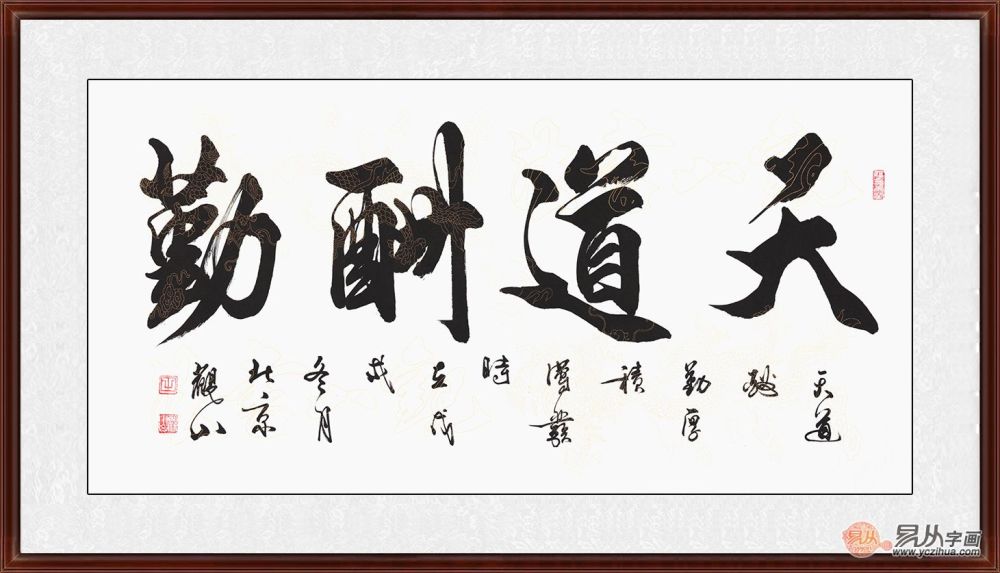 天道酬勤
天道
酬
勤厚
積
薄發
時
在戊
戌
冬月
北京
觀山
易从字画
www.yczihua.com